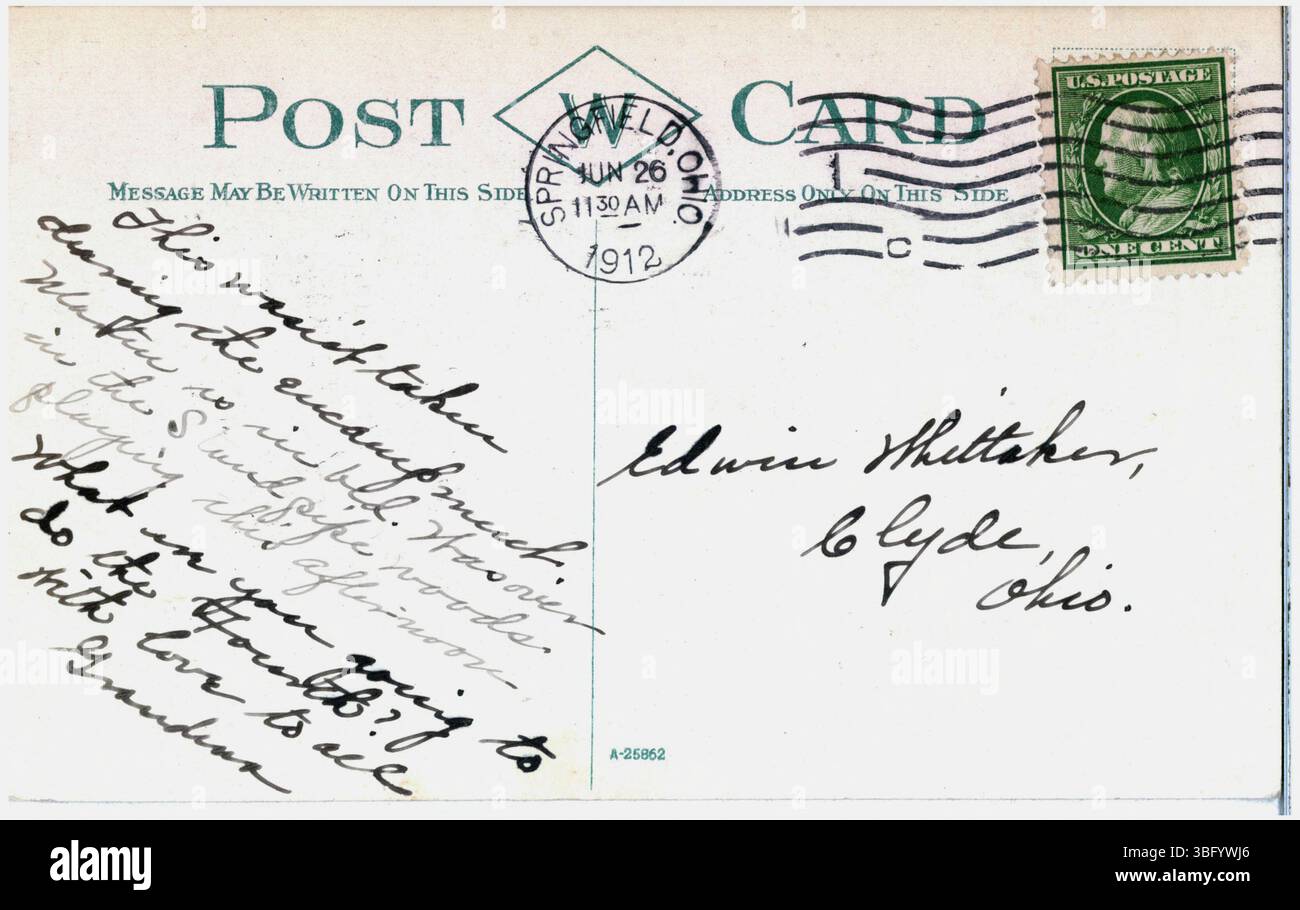 POST W CARD
MESSAGE MAY BE WRITTEN ON THIS SIDE
ADDRESS ONLY ON THIS SIDE
SPRINGFIELD, OHIO.
JUN 26
11 30 AM
1912
1
C
U.S. POSTAGE
ONE CENT
This wasn't taken
during the encampment.
in bed. Was over
in the woods
playing this afternoon.
What are you going to
do the Fourth?
With love to all
Grandma
Edwin Whittaker,
Clyde,
Ohio.
A-25862
alamy
alamy
Image ID: 3BFYWJ6
www.alamy.com